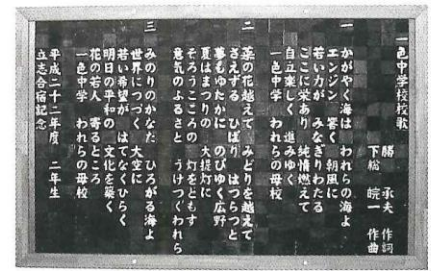 一色中学校校歌
勝 承夫 作詞
下總 皖一 作曲
一
かがやく海は われらの海よ
エンジン 答く 朝風に
若い力が みなぎりわたる
ここに栄あり 純情燃えて
自立楽しく 進みゆく
一色中学 われらの母校
二
菜の花越えて みどりを越えて
さえずる ひばり はつらつと
夢もゆたかに のびゆく広野
夏はまつりの 大提灯に
そろうこころの 灯をともす
意気のふるさと うけつぐわれら
三
みのりのかなた ひろがる海よ
世界につづく 大空に
若い希望が はてなくひらく
明日の平和の 文化を築く
花の若人 寄るところ
一色中学 われらの母校
平成二十二年度 二年生
立志合宿記念